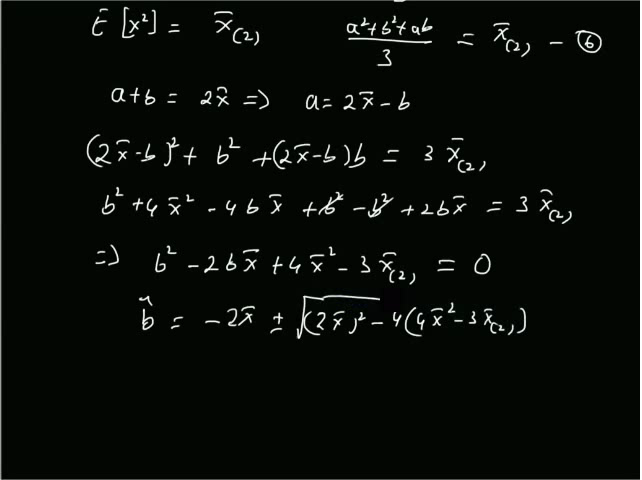 E [x²] = x̄₍₂₎   (a²+b²+ab)/3 = x̄₍₂₎ - ⑥
a+b = 2x̄ => a = 2x̄ - b
(2x̄-b)² + b² + (2x̄-b)b = 3 x̄₍₂₎
b² + 4x̄² - 4bx̄ + b² - b² + 2bx̄ = 3 x̄₍₂₎
=> b² - 2bx̄ + 4x̄² - 3x̄₍₂₎ = 0
b̂ = -2x̄ ± √(2x̄)² - 4(4x̄² - 3x̄₍₂₎)